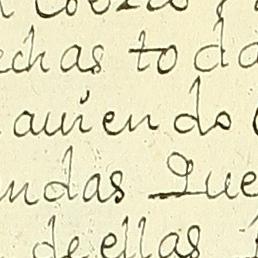 echas toda
auiendo
ndas Que
de ellas